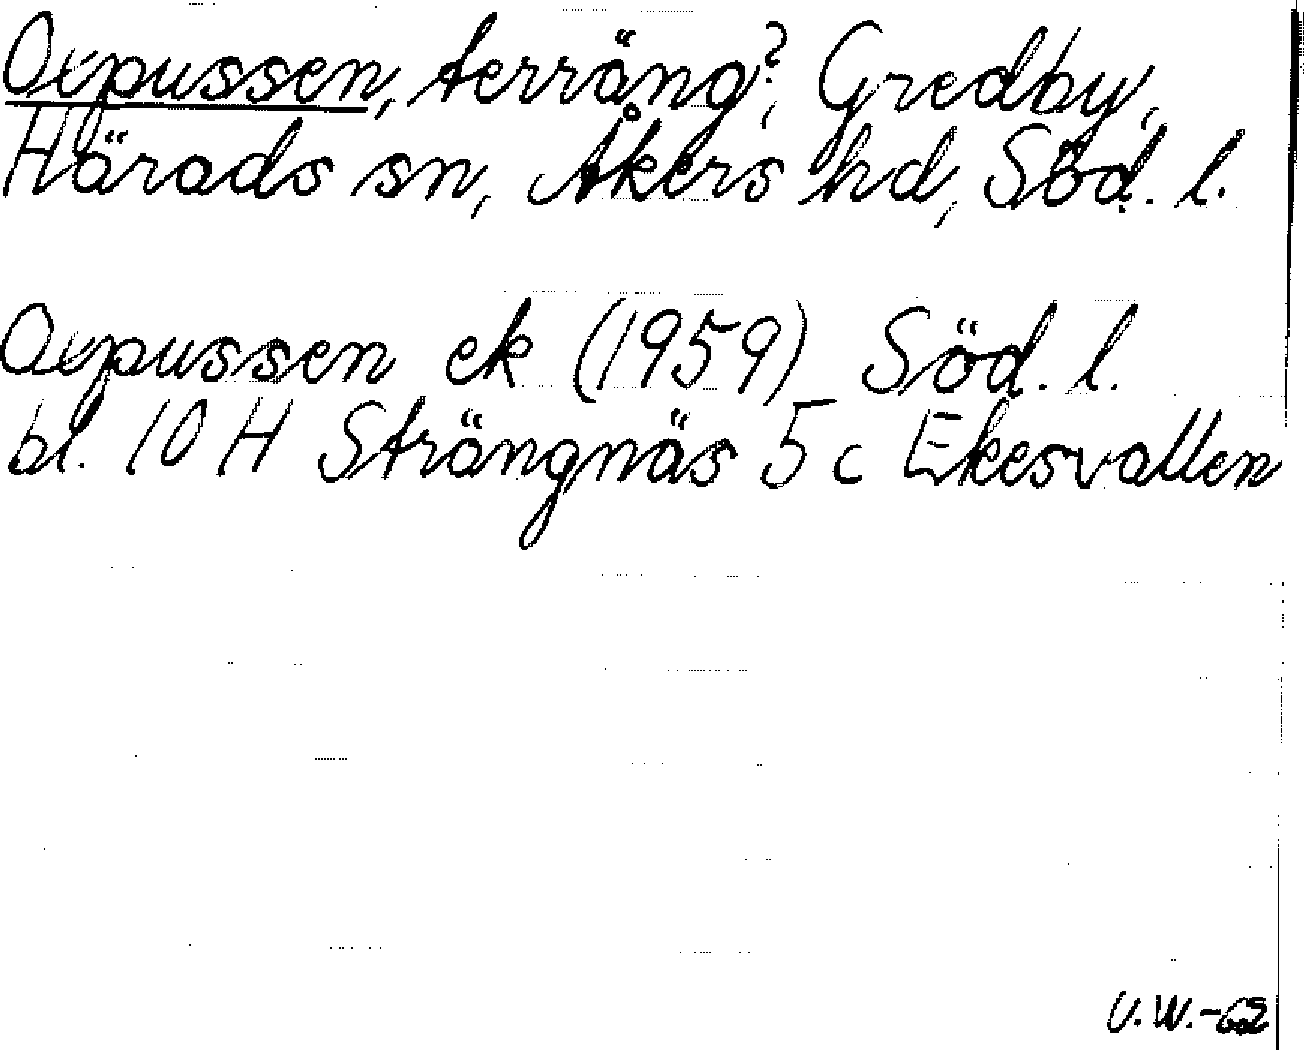 Oxpussen, terräng?, Gredby,
Härads sn, Åkers hd, Söd. l.
Oxpussen ek (1959) Söd. l.
bl. 10 H Strängnäs 5 c Ekesvallen
U.W.-62